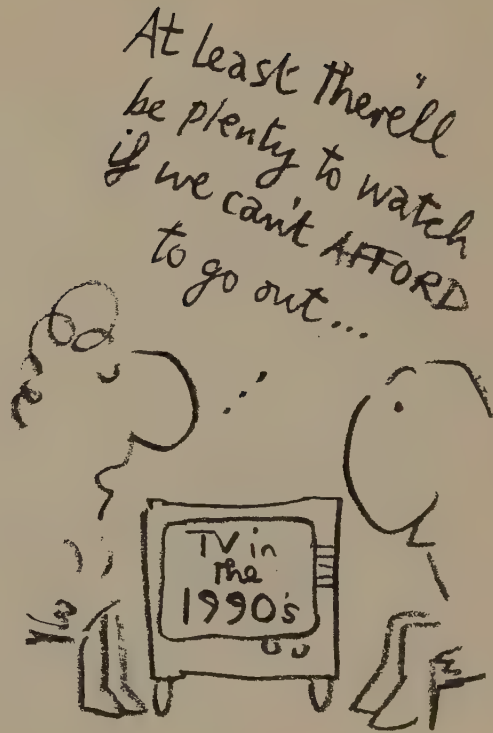 At least there'll
be plenty to watch
if we can't AFFORD
to go out...
TV in
the
1990's